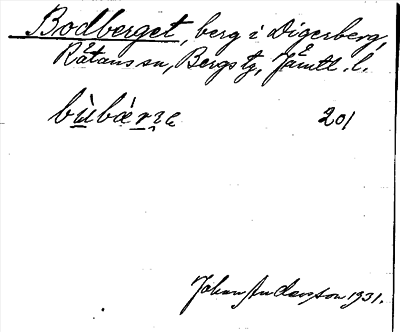 Bodberget, berg i Digerberg,
Råtans sn, Bergs tg, Jämtl. l.
201
Johan Andersson 1931.